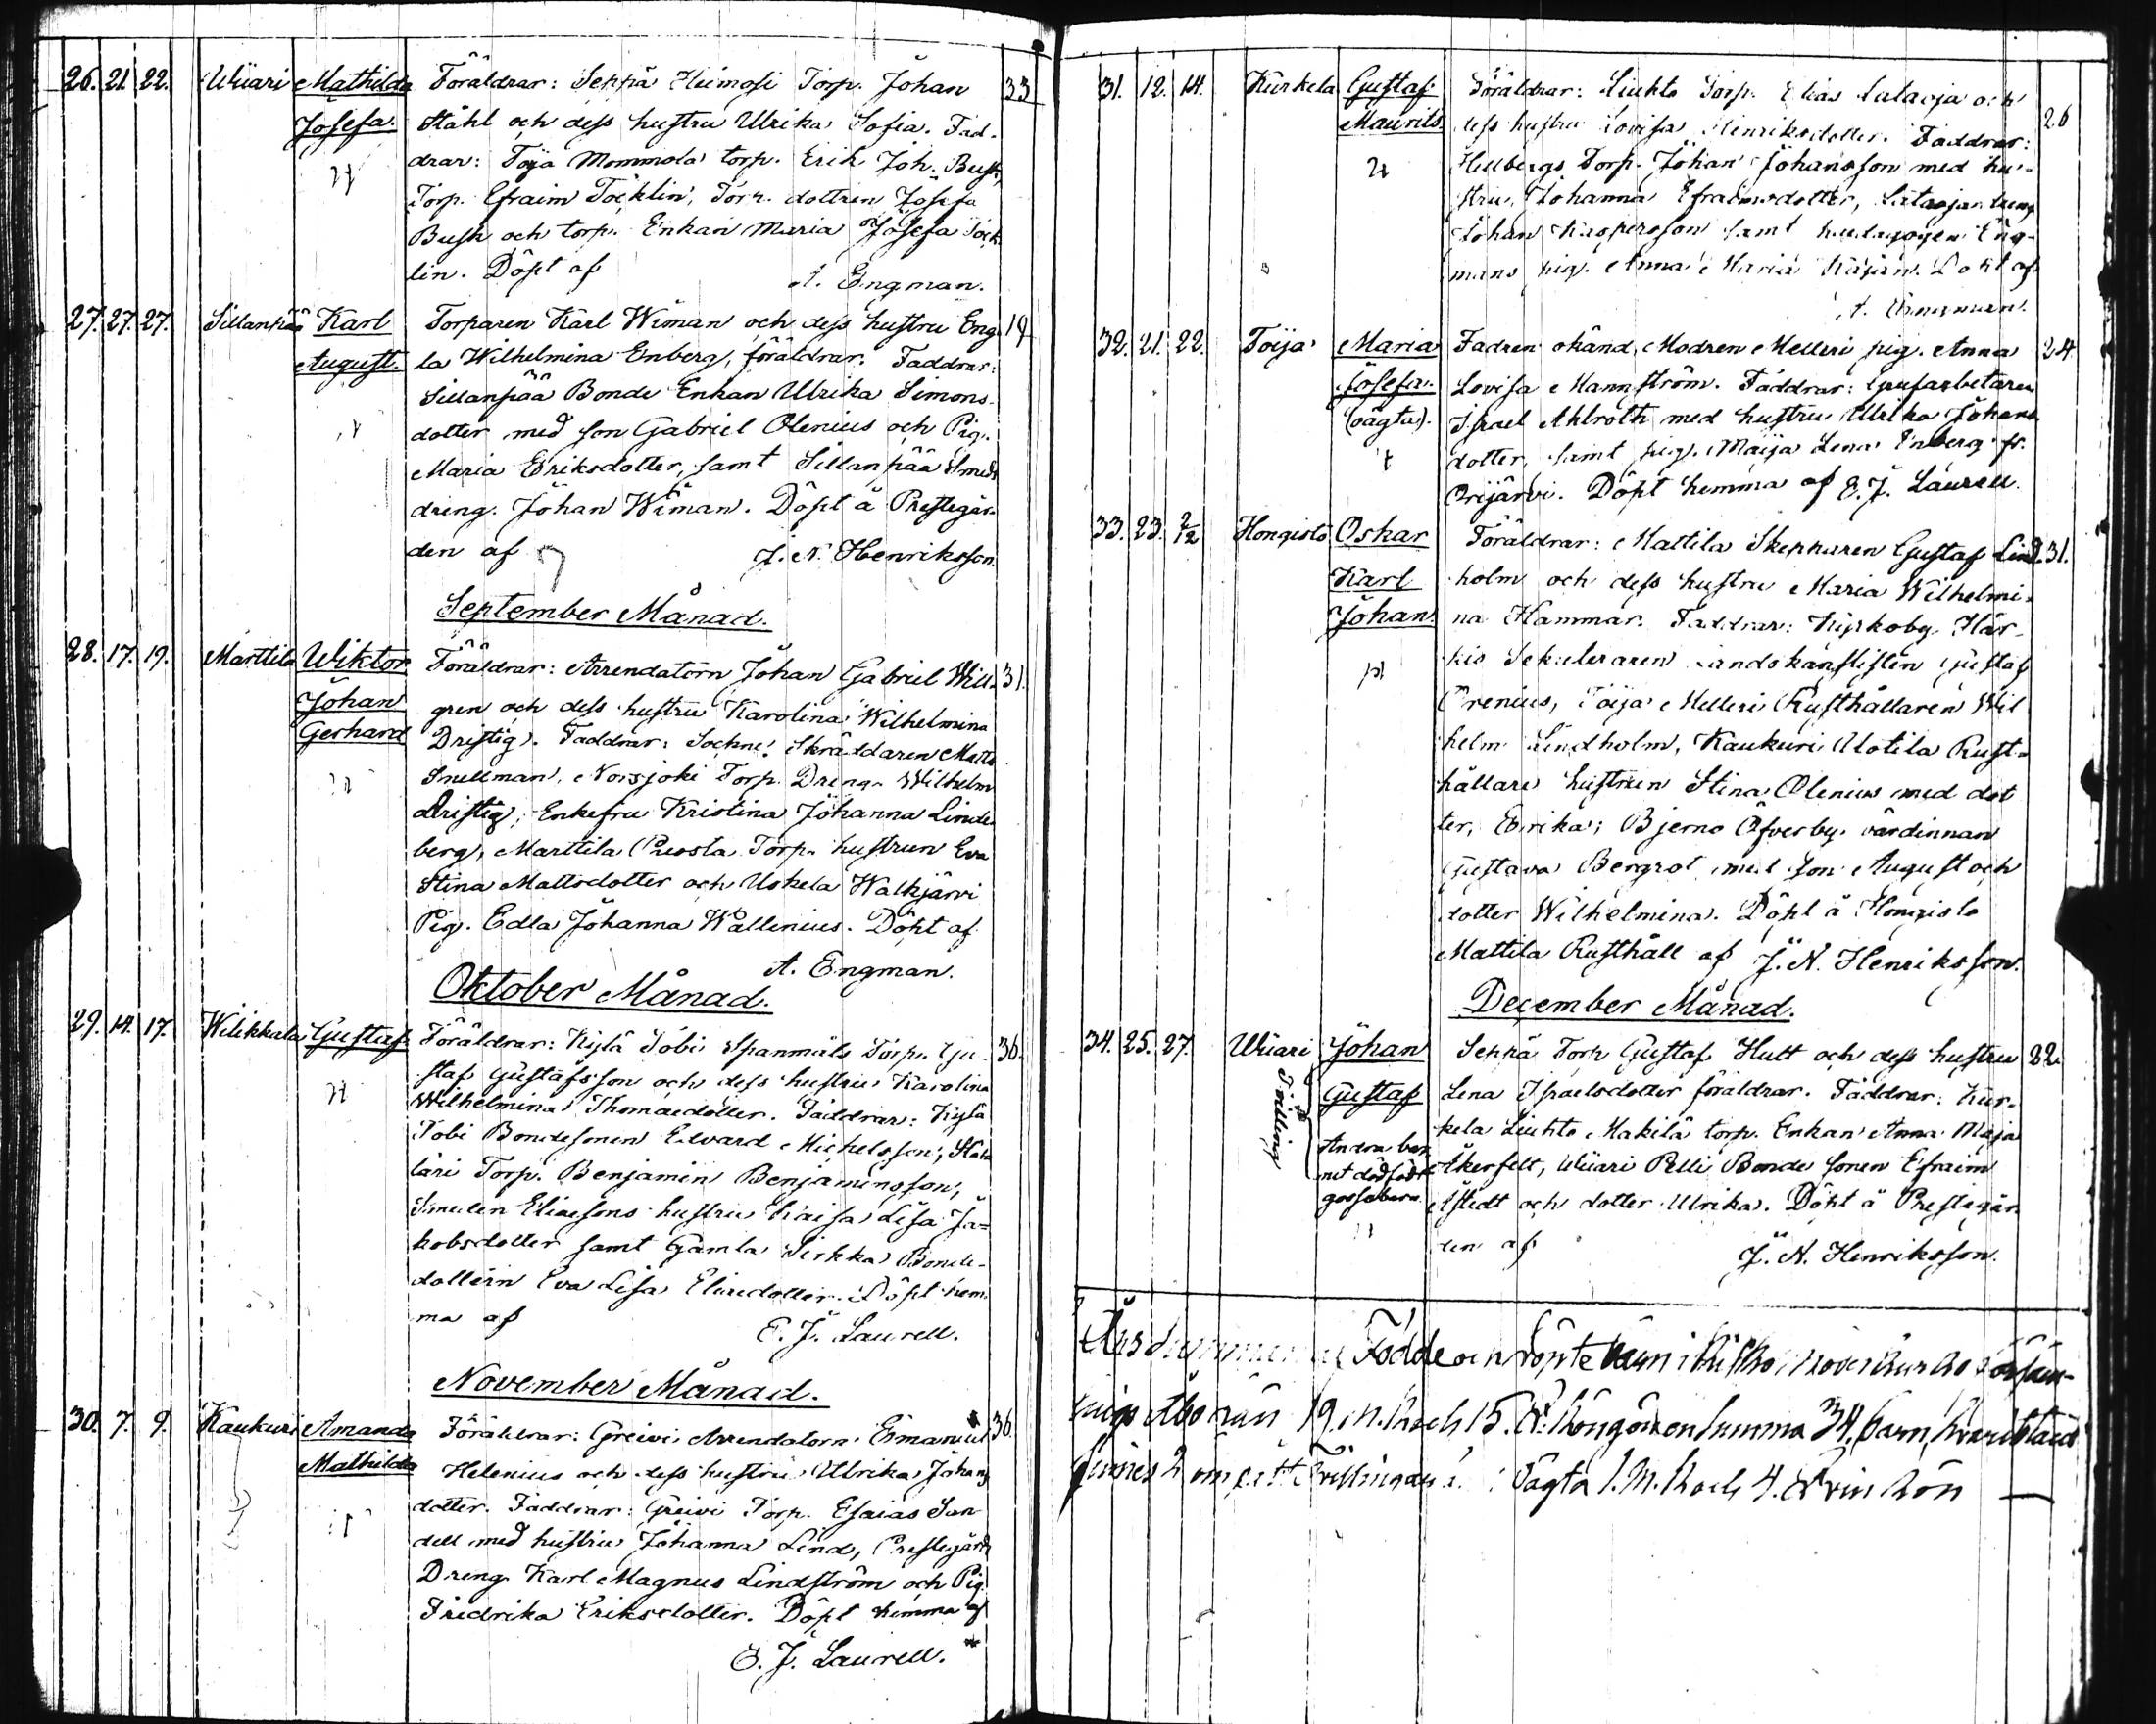 26. 21. 22. Wiiari Mathilda Föräldrar: Seppä Heimosi Torp. Johan 33
Josefa. Ståhl och dess hustru Ulrika Sofia. Fad-
drar: Toija Mommola torp. Erik Joh. Bush,
Torp. Efraim Töcklin, Torp. dottren Josefa
Bush och torp. Enkan Maria Josefa Töck
lin. Döpt af A. Engman.
27. 27. 27. Sillanpää Karl Torparen Karl Wiman och dess hustru Eng- 19
August. la Wilhelmina Enberg, föräldrar. Faddrar:
Sillanpää Bonde Enkan Ulrika Simons-
dotter med son Gabriel Olenius och Pig.
Maria Eriksdotter, samt Sillanpää Smeds
dreng. Johan Wiman. Döpt å Prestegår-
den af J. N. Henriksson.
September Månad.
28. 17. 19. Marttila Wiktor Föräldrar: Arrendatorn Johan Gabriel Will- 31.
Johan gren och dess hustru Karolina Wilhelmina
Gerhard Dristig. Faddrar: Sockne Skräddaren Matts
Snellman, Norsjoki Torp. Dreng. Wilhelm
Dristig, Enkefru Kristina Johanna Linde-
berg, Marttila Prosta Torp. hustrun Eva
Stina Mattsdotter och Uskela Walkjärvi
Pig. Edla Johanna Wallenius. Döpt af
A. Engman.
Oktober Månad.
29. 14. 17. Wilikkala Gustaf Föräldrar: Kylä Tobi Spanmåls Torp. Gu- 36.
staf Gustafsson och dess hustru Karolina
Wilhelmina Thomaedotter. Faddrar: Kylä
Tobi Bondesonen Edvard Michelsson,
läri Torp. Benjamin Benjaminsson,
Eliaesons hustru Kaisa Lisa Ja-
kobsdotter samt Gamla Sirkka Bonde-
dottern Eva Lisa Eliaedotter. Döpt hem-
ma af E. J. Laurell.
November Månad.
30. 7. 9. Kaukuri Amanda Föräldrar: Greivi Arrendatorn Emanuel 36.
Mathilda Helenius och dess hustru Ulrika Johans
dotter. Faddrar: Greivi Torp. Esaias San-
dell med hustru Johanna Lind, Prestegårds
Dreng Karl Magnus Lindström och Pig.
Fredrika Eriksdotter. Döpt hemma af
E. J. Laurell.
31. 12. 14. Kurkela Gustaf Föräldrar: Liuhto Torp. Elias Lataoja och 26
Maurits. dess hustru Lovisa Henriksdotter. Faddrar:
Hellbergs Torp. Johan Johansson med hu-
stru, Johanna Efraimsdotter, Lataojan dreng
Johan Kaspersson samt Eng-
mans pig. Anna Maria Kajan. Döpt af
A. Engman.
32. 21. 22. Toija Maria Fadren okänd, Modren Melleri pig. Anna 24.
Josefa. Lovisa Mannström. Faddrar: Grufarbetaren
(oägta). Israel Ahlroth med hustru Ulrika Johans
dotter, samt pig. Maija Lena Enberg fr.
Orijärvi. Döpt hemma af E. J. Laurell.
33. 23. 2/12 Hongisto Oskar Föräldrar: Mattila Skepparen Gustaf Lind- 31.
Karl holm och dess hustru Maria Wilhelmi-
Johan. na Hammar. Faddrar: Kyrkoby Här-
kis Landskanslisten Gustaf
Orenius, Toija Melleri Rusthållaren Wil
helm Lindholm, Kaukuri Uotila Rust-
hållare hustrun Stina Olenius med dot
ter, Erika; Bjerno Öfverby. värdinnan
Gustava Bergrot med son August och
dotter Wilhelmina. Döpt å Hongisto
Mattila Rusthåll af J. N. Henriksson.
December Månad.
34. 25. 27. Wiiari Johan Seppä Torp Gustaf Hutt och dess hustru 22.
Gustaf Lena Israelsdotter föräldrar. Faddrar: Kur-
Tvilling
Andra bar- kela Liuhto Makilä torp. Enkan Anna Maja
net dödfödt Åkerfelt, Wiiari Pelli Bonde sonen Efraim
gossebarn. och dotter Ulrika. Döpt å Prestegår-
den af J. N. Henriksson.
Års Summan Födde och Döpte barn i
19. M. Kön och 15. Qv. Kön summa 34. barn,
2 Tvillingar. Oägta 1. M. Kön och 4. Qvin Kön —